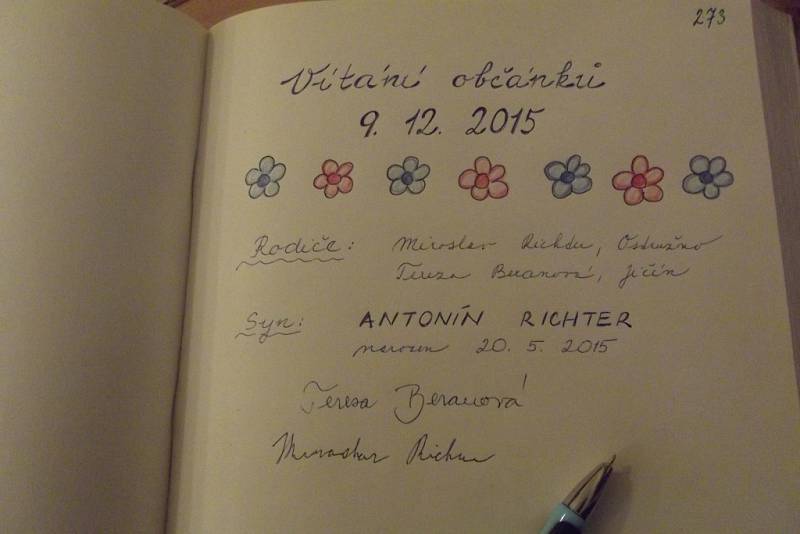 273
Vítání občánků
9. 12. 2015
Rodiče: Miroslav Richter, Ostružno
Tereza Beranová, Jičín
Syn: ANTONÍN RICHTER
narozen 20. 5. 2015
Tereza Beranová
Miroslav Richter